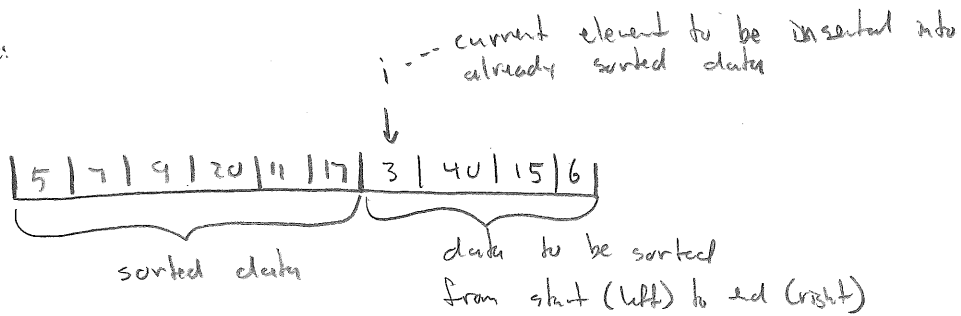 i --- current element to be inserted into
already sorted data
5 | 7 | 9 | 20 | 11 | 17 | 3 | 40 | 15 | 6
sorted data
data to be sorted
from start (left) to end (right)